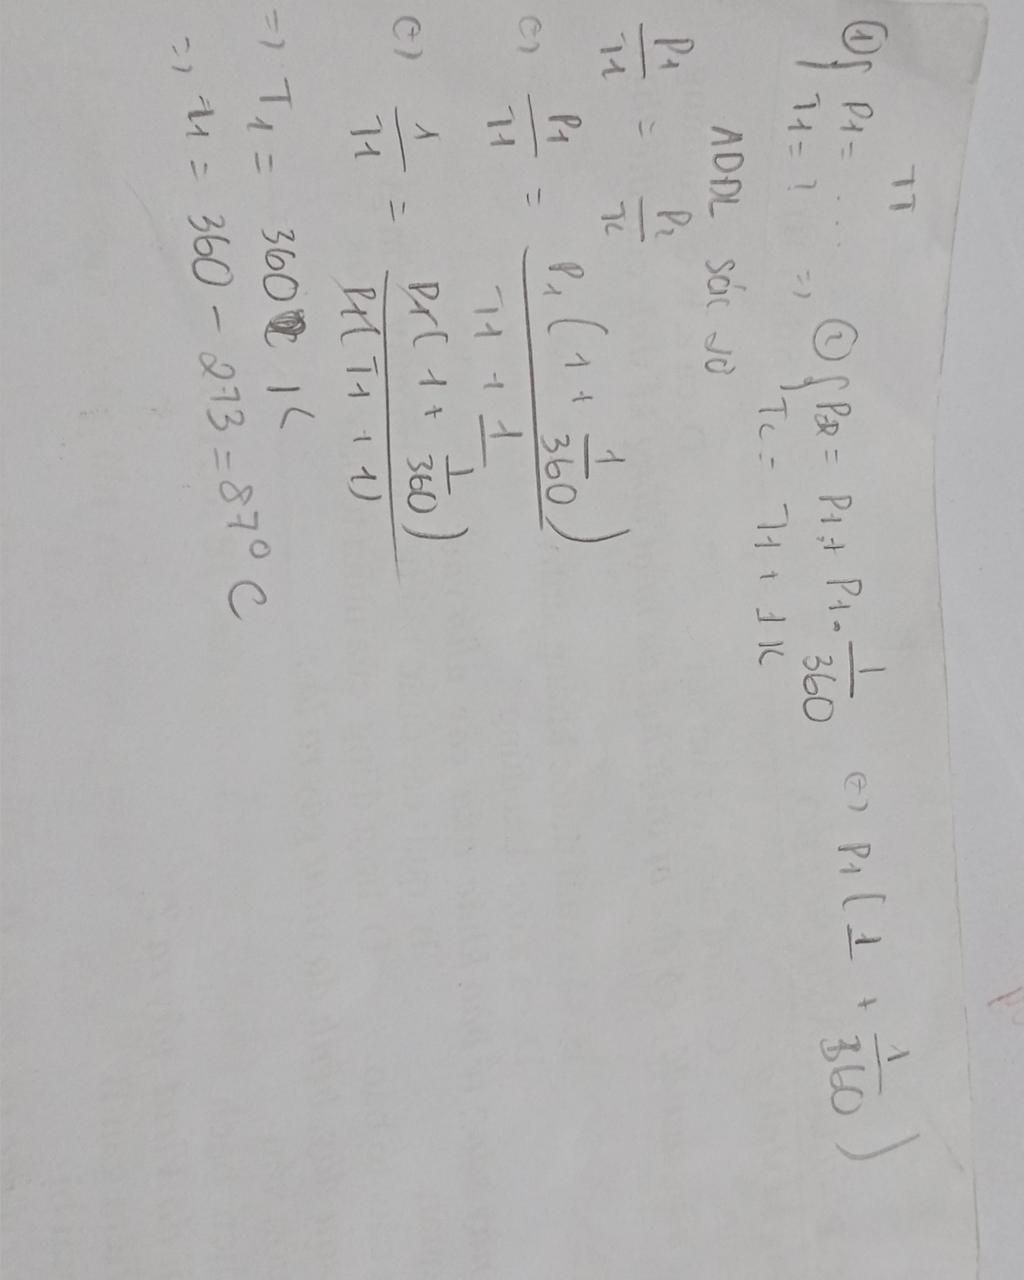 TT
① { P1 = .... => ② { P2 = P1 + P1 . 1/360 <=> P1 ( 1 + 1/360 )
T1 = ? T2 = T1 + 1K
ADĐL Sác lơ
P1/T1 = P2/T2
<=> P1/T1 = P1 ( 1 + 1/360 ) / T1 + 1
<=> 1/T1 = P1 ( 1 + 1/360 ) / P1 ( T1 + 1 )
=> T1 = 360 K
=> t1 = 360 - 273 = 87° C